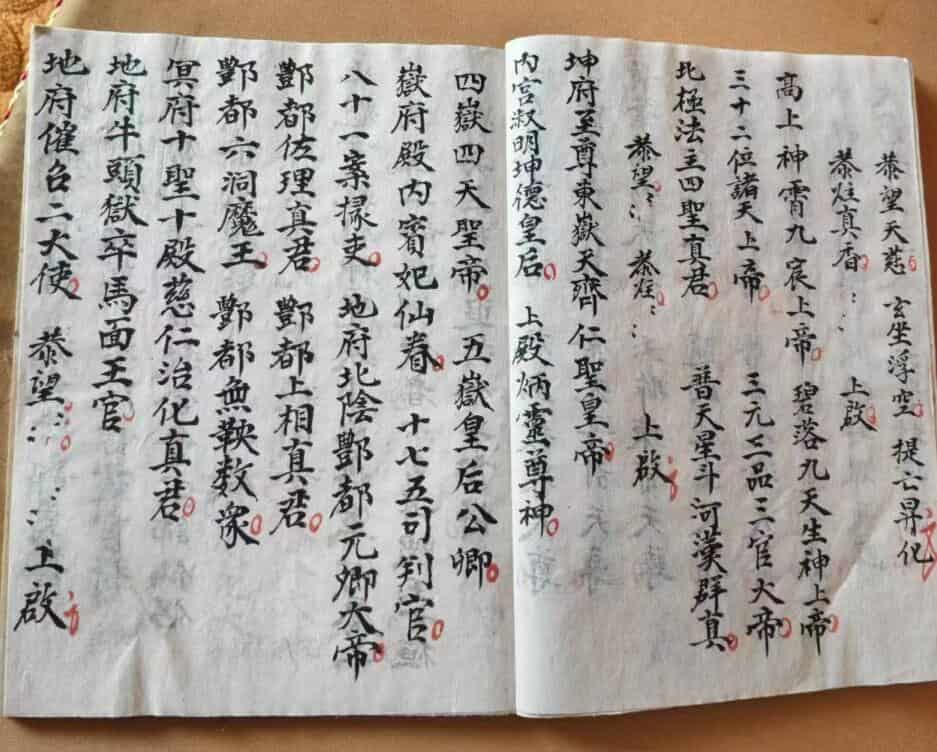 恭望天慈 玄坐浮空 提亡昇化
恭炷真香 上啟
高上神霄九宸上帝 碧落九天生神上帝
三十二位諸天上帝 三元三品三官大帝
北極法主四聖真君 普天星斗河漢群真
恭望 恭炷 上啟
坤府至尊東嶽天齊仁聖皇帝
内宮淑明坤德皇后 上殿炳靈尊神
四嶽四天聖帝 五嶽皇后公卿
嶽府殿内賓妃仙眷 十七五司判官
八十一案掾吏 地府北陰酆都元卿大帝
酆都佐理真君 酆都上相真君
酆都六洞魔王 酆都無鞅数衆
冥府十聖十殿慈仁治化真君
地府牛頭獄卒馬面王官
地府催召二大使 恭望 上啟